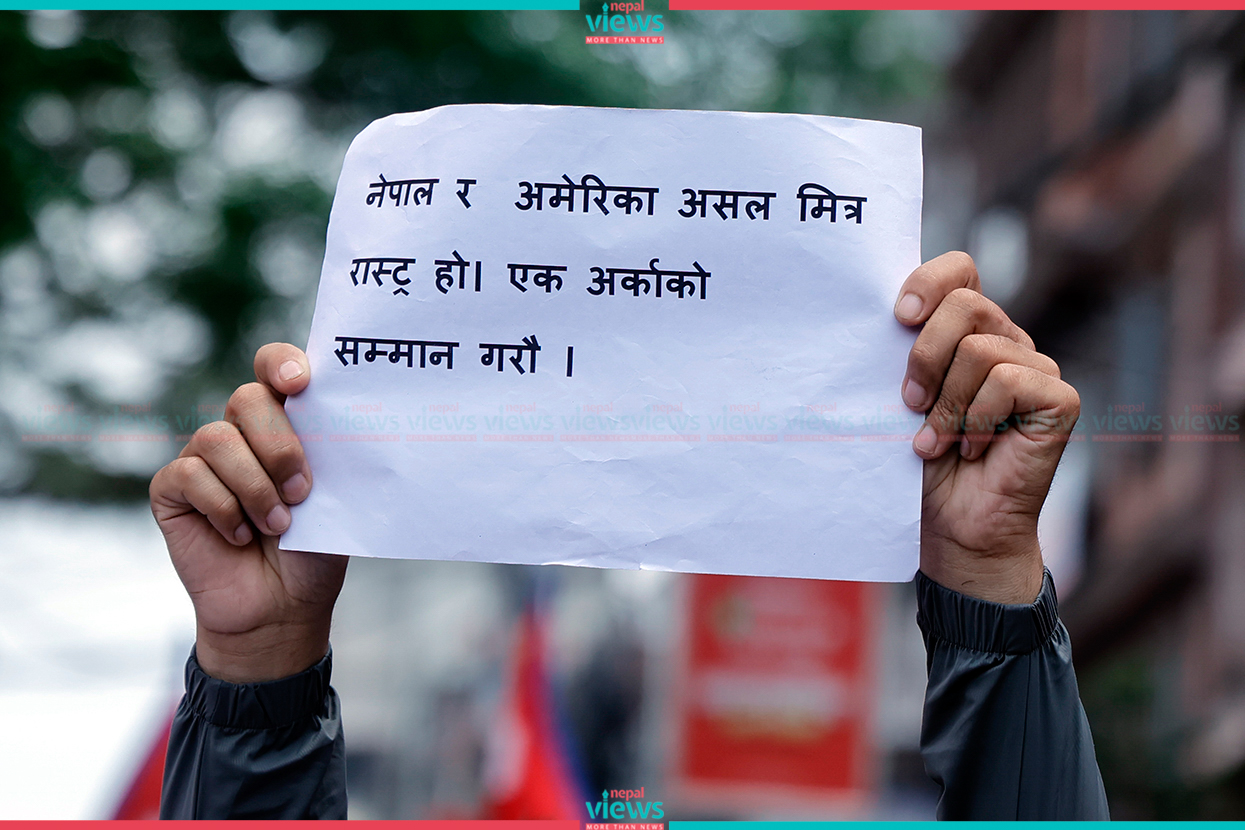 nepal
views
MORE THAN NEWS
नेपाल र अमेरिका असल मित्र
रास्ट्र हो। एक अर्काको
सम्मान गरौ ।
nepal
views
MORE THAN NEWS